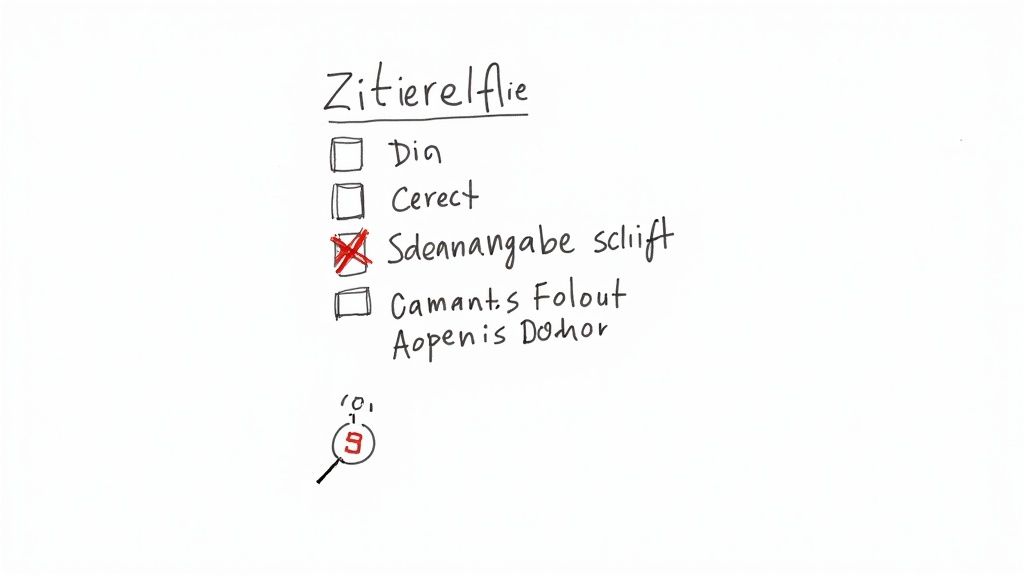 Zitierelflie
Din
Cerect
Sdeanangabe schift
Camants Folout
Aopenis Dohor
9